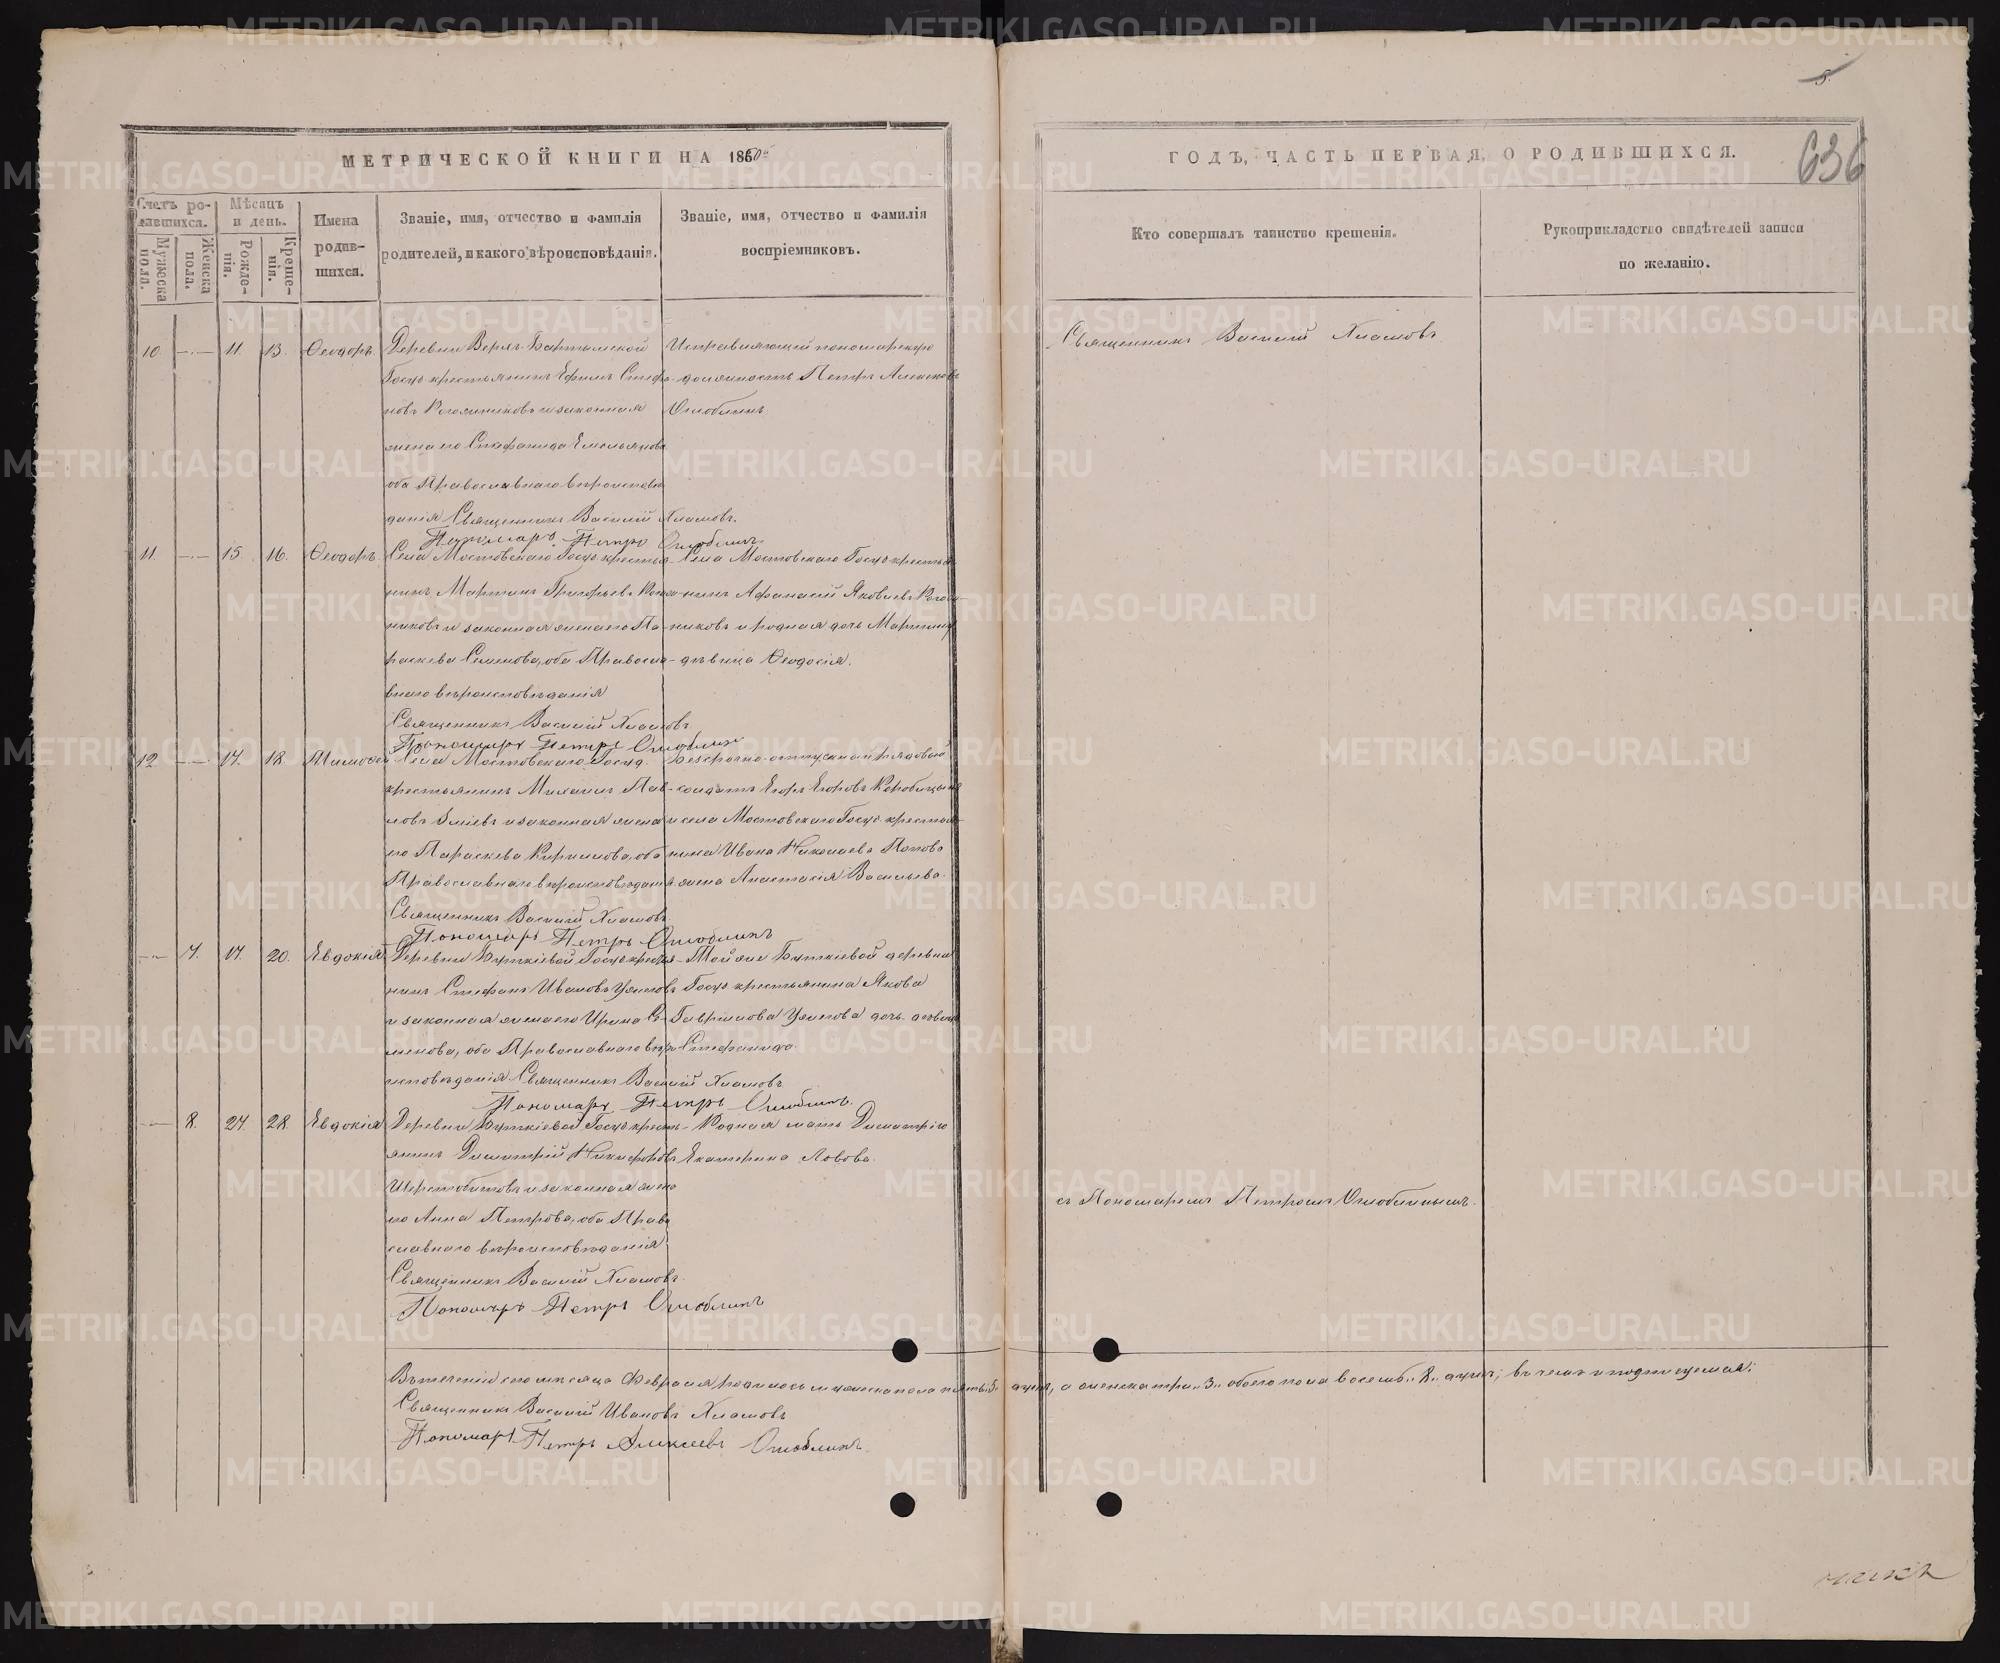 5.
МЕТРИЧЕСКОЙ КНИГИ НА 1860й
ГОДЪ, ЧАСТЬ ПЕРВАЯ, О РОДИВШИХСЯ.
636
Счетъ родившихся.
Мужеска пола.
Женска пола.
Мѣсяцъ и день.
Рожденія.
Крещенія.
Имена родившихся.
Званіе, имя, отчество и фамилія родителей, и какого вѣроисповѣданія.
Званіе, имя, отчество и фамилія воспріемниковъ.
Кто совершалъ таинство крещенія.
Рукоприкладство свидѣтелей записи по желанію.
10. 11. 13. Ѳеодоръ.
Деревни Верхъ-Бартымской
Госуд. крестьянинъ Ефимъ Стефановъ и законная
жена его Стефанида Емельянова
оба Православнаго вѣроисповѣданія
Священникъ Василій Хламовъ.
Пономарь Петръ
Исправляющій пономарскую
должность Петръ Алексѣевъ
Священникъ Василій Хламовъ
11. 15. 16. Ѳеодоръ.
Села Мостовскаго Госуд. крестьянинъ Мартинъ Григорьевъ
и законная жена его Параскева Семенова, оба Православнаго вѣроисповѣданія
Священникъ Василій Хламовъ
Пономарь Петръ
Села Мостовскаго Госуд. крестьянинъ Афанасій Яковлевъ
и родная дочь Мартина
дѣвица Ѳеодосія.
12. 17. 18. Тимоѳей
Села Мостовскаго Госуд.
крестьянинъ Михаилъ Павловъ и законная жена
его Параскева Кирилова, оба
Православнаго вѣроисповѣданія
Священникъ Василій Хламовъ
Пономарь Петръ
Безсрочно-отпускной рядовой
солдатъ Егоръ Егоровъ
и села Мостовскаго Госуд. крестьянина Ивана Николаева Попова
жена Анастасія Васильева.
7. 17. 20. Евдокія
Госуд. крестьянинъ Стефанъ Ивановъ
и законная жена его Ирина Семенова, оба Православнаго вѣроисповѣданія
Священникъ Василій Хламовъ
Пономарь Петръ
Той же деревни
Госуд. крестьянина Якова
Гаврилова дочь дѣвица
Стефанида.
8. 27. 28. Евдокія
Госуд. крестьянинъ Димитрій Никифоровъ
Шерстобитовъ и законная жена
его Анна Петрова, оба Православнаго вѣроисповѣданія
Священникъ Василій Хламовъ
Пономарь Петръ
Родная мать Димитрія
Екатерина Львова.
съ Пономаремъ Петромъ
Въ теченіи сего мѣсяца Февраля родилось мужеска пола пять „5“ душъ, а женска три „3“ обоего пола восемь „8“ душъ; въ чемъ и подписуемся:
Священникъ Василій Ивановъ Хламовъ
Пономарь Петръ Алексѣевъ
METRIKI.GASO-URAL.RU